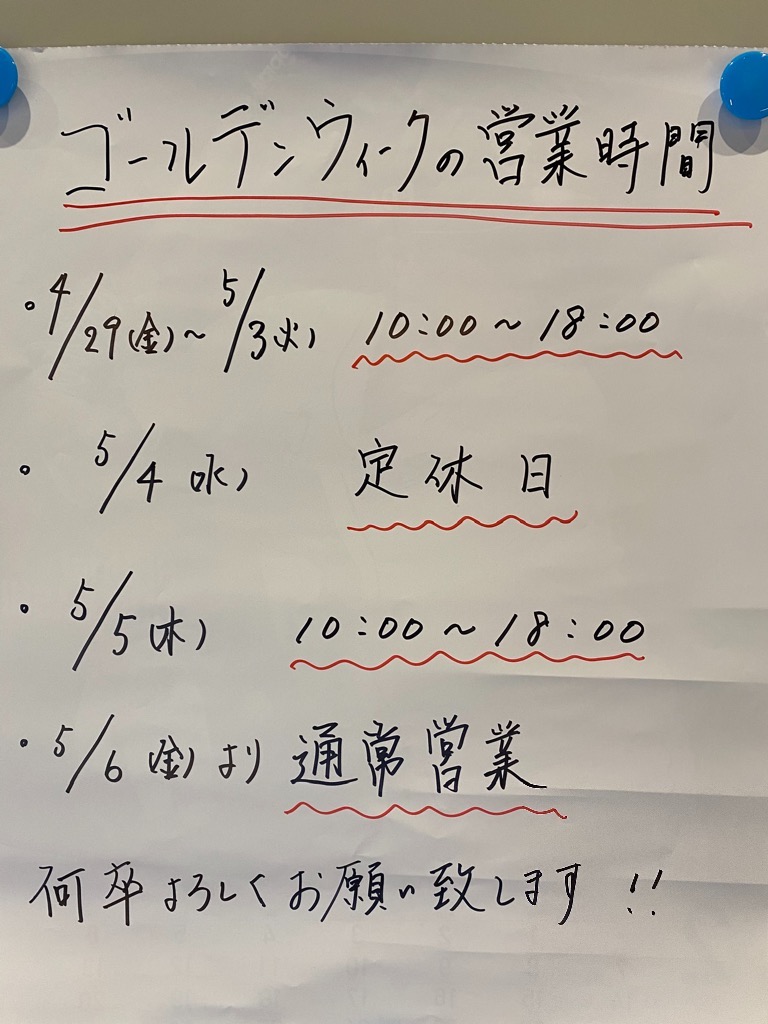 ゴールデンウィークの営業時間
・4/29(金)～5/3(火) 10:00～18:00
・5/4(水) 定休日
・5/5(木) 10:00～18:00
・5/6(金)より 通常営業
何卒よろしくお願い致します!!